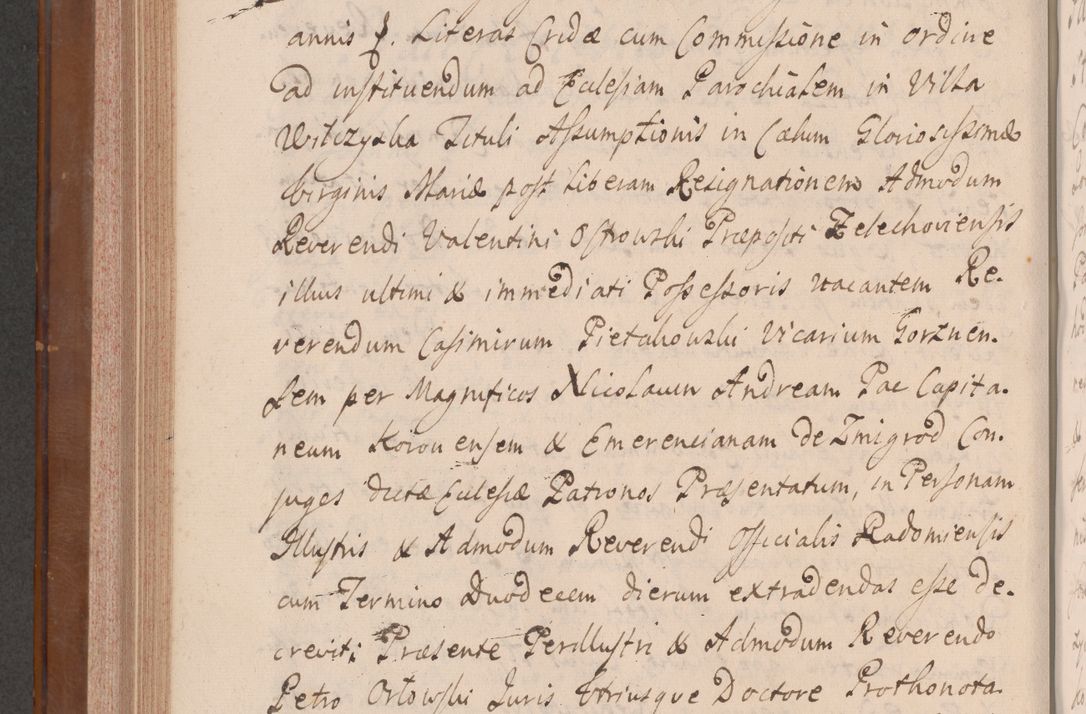 annis ʄ. Literas Cridæ cum Commissione in ordine
ad instituendum ad Ecclesiam Parochialem in Villa
Wilczyska Tituli Assumptionis in Cælum Gloriosissimæ
Virginis Mariæ post liberam Resignationem Admodum
Reverendi Valentini Ostrowski Præpositi Zelechoviensis
illius ultimi & immediati Possessoris vacantem Re-
verendum Casimirum Pietakowski Vicarium Gorznen-
sem per Magnificos Nicolaum Andream Pac Capita-
neum Kovouensem & Emerencianam de Zmigrod Con-
juges dictæ Eclesiæ Patronos Præsentatum, in Personam
Illustris & Admodum Reverendi Officialis Radomiensis
cum Termino Duodecem dierum extradendas esse de-
crevit; Præsente Perillustri & Admodum Reverendo
Petro Orłowski Juris Utriusque Doctore Prothonota-